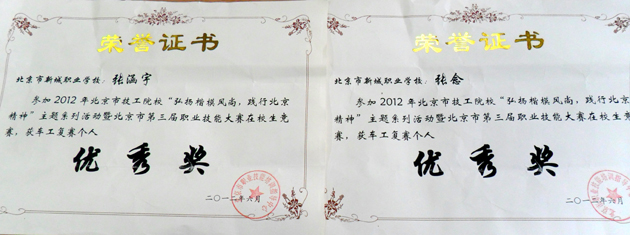 荣誉证书
北京市新城职业学校：张涵宇
参加2012年北京市技工院校“弘扬楷模风尚，践行北京
精神”主题系列活动暨北京市第三届职业技能大赛在校生竞
赛，获车工复赛个人
优秀奖
二〇一二年六月
荣誉证书
北京市新城职业学校：张念
参加2012年北京市技工院校“弘扬楷模风尚，践行北京
精神”主题系列活动暨北京市第三届职业技能大赛在校生竞
赛，获车工复赛个人
优秀奖
二〇一二年六月